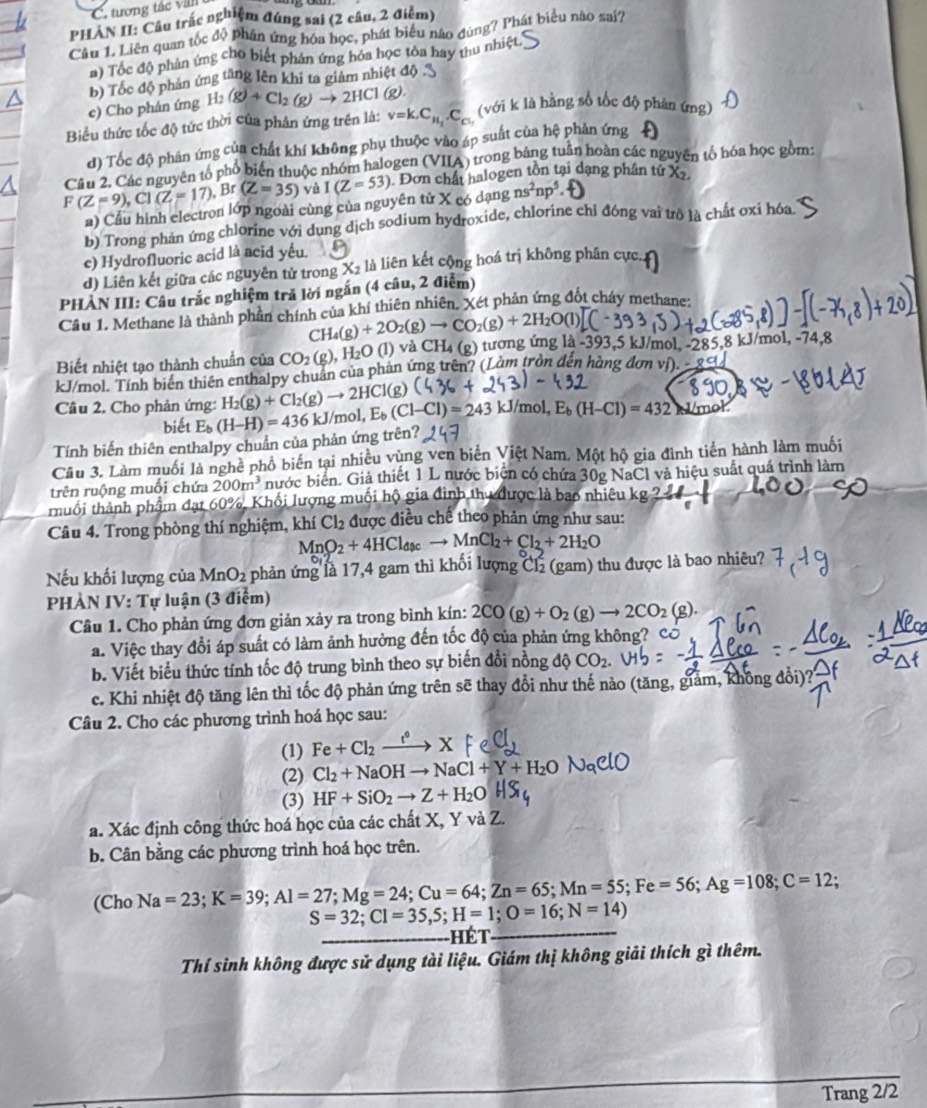 C. tương tác van
PHẦN II: Câu trắc nghiệm đúng sai (2 câu, 2 điểm)
Câu 1. Liên quan tốc độ phản ứng hóa học, phát biểu nào đúng? Phát biểu nào sai?
a) Tốc độ phản ứng cho biết phản ứng hóa học tỏa hay thu nhiệt. S
b) Tốc độ phản ứng tăng lên khi ta giảm nhiệt độ. S
c) Cho phản ứng H₂ (g) + Cl₂ (g) → 2HCl (g).
Biểu thức tốc độ tức thời của phản ứng trên là: v=k.C_{H₂}.C_{Cl₂} (với k là hằng số tốc độ phản ứng) Đ
d) Tốc độ phản ứng của chất khí không phụ thuộc vào áp suất của hệ phản ứng Đ
Câu 2. Các nguyên tố phổ biến thuộc nhóm halogen (VIIA) trong bảng tuần hoàn các nguyên tố hóa học gồm:
F (Z = 9), Cl (Z = 17), Br (Z = 35) và I (Z = 53). Đơn chất halogen tồn tại dạng phân tử X₂.
a) Cấu hình electron lớp ngoài cùng của nguyên tử X có dạng ns²np⁵. Đ
b) Trong phản ứng chlorine với dung dịch sodium hydroxide, chlorine chỉ đóng vai trò là chất oxi hóa. S
c) Hydrofluoric acid là acid yếu. Đ
d) Liên kết giữa các nguyên tử trong X₂ là liên kết cộng hoá trị không phân cực. Đ
PHẦN III: Câu trắc nghiệm trả lời ngắn (4 câu, 2 điểm)
Câu 1. Methane là thành phần chính của khí thiên nhiên. Xét phản ứng đốt cháy methane:
CH₄(g) + 2O₂(g) → CO₂(g) + 2H₂O(l) [(-393,5)+2(-285,8)]-[(-74,8)+20]
Biết nhiệt tạo thành chuẩn của CO₂ (g), H₂O (l) và CH₄ (g) tương ứng là -393,5 kJ/mol, -285,8 kJ/mol, -74,8
kJ/mol. Tính biến thiên enthalpy chuẩn của phản ứng trên? (Làm tròn đến hàng đơn vị). -891
Câu 2. Cho phản ứng: H₂(g) + Cl₂(g) → 2HCl(g) (436 + 243) - 432 -890,3 ≈
biết E_b (H–H) = 436 kJ/mol, E_b (Cl–Cl) = 243 kJ/mol, E_b (H–Cl) = 432 kJ/mol.
Tính biến thiên enthalpy chuẩn của phản ứng trên? 247
Câu 3. Làm muối là nghề phổ biến tại nhiều vùng ven biển Việt Nam. Một hộ gia đình tiến hành làm muối
trên ruộng muối chứa 200m³ nước biển. Giả thiết 1 L nước biển có chứa 30g NaCl và hiệu suất quá trình làm
muối thành phẩm đạt 60%. Khối lượng muối hộ gia đình thu được là bao nhiêu kg?
Câu 4. Trong phòng thí nghiệm, khí Cl₂ được điều chế theo phản ứng như sau:
MnO₂ + 4HClđặc → MnCl₂ + Cl₂ + 2H₂O
0,2 0,2
Nếu khối lượng của MnO₂ phản ứng là 17,4 gam thì khối lượng Cl₂ (gam) thu được là bao nhiêu? 7,1g
PHẦN IV: Tự luận (3 điểm)
Câu 1. Cho phản ứng đơn giản xảy ra trong bình kín: 2CO (g) + O₂ (g) → 2CO₂ (g).
a. Việc thay đổi áp suất có làm ảnh hưởng đến tốc độ của phản ứng không? có
b. Viết biểu thức tính tốc độ trung bình theo sự biến đổi nồng độ CO₂.
c. Khi nhiệt độ tăng lên thì tốc độ phản ứng trên sẽ thay đổi như thế nào (tăng, giảm, không đổi)?
Câu 2. Cho các phương trình hoá học sau:
(1) Fe + Cl₂ —t⁰→ X FeCl₂
(2) Cl₂ + NaOH → NaCl + Y + H₂O NaClO
(3) HF + SiO₂ → Z + H₂O
a. Xác định công thức hoá học của các chất X, Y và Z.
b. Cân bằng các phương trình hoá học trên.
(Cho Na = 23; K = 39; Al = 27; Mg = 24; Cu = 64; Zn = 65; Mn = 55; Fe = 56; Ag =108; C = 12;
S = 32; Cl = 35,5; H = 1; O = 16; N = 14)
HẾT
Thí sinh không được sử dụng tài liệu. Giám thị không giải thích gì thêm.
Trang 2/2